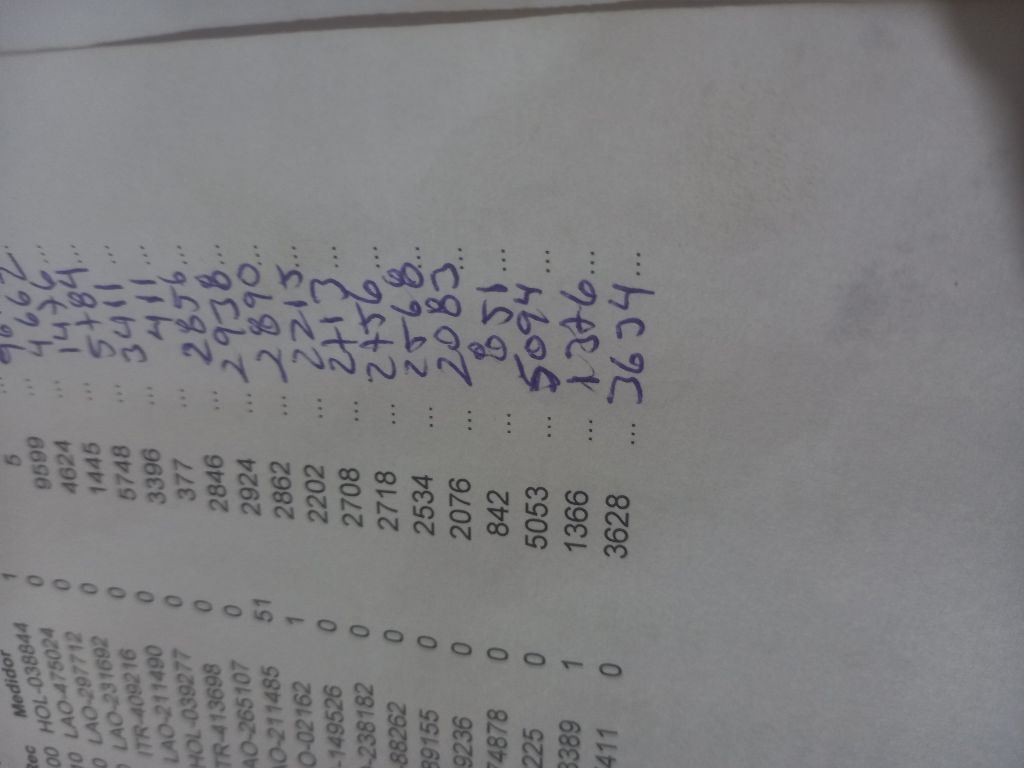 tec Medidor
00 HOL-038844 1
10 LAO-475024 0 5 ...
0 LAO-297712 0 9599 ...
LAO-231692 0 4624 ... 4662 ...
ITR-409216 0 1445 ... 1476 ...
LAO-211490 0 5748 ... 5784 ...
HOL-039277 0 3396 ... 3411 ...
TR-413698 0 377 ... 411 ...
AO-265107 0 2846 ... 2856 ...
AO-211485 51 2924 ... 2938 ...
O-02162 1 2862 ... 2890 ...
-149526 0 2202 ... 2215 ...
-238182 0 2708 ... 2713 ...
-88262 0 2718 ... 2756 ...
89155 0 2534 ... 2568 ...
39236 0 2076 ... 2083 ...
74878 0 842 ... 851 ...
225 0 5053 ... 5094 ...
3389 1 1366 ... 1376 ...
411 0 3628 ... 3634 ...